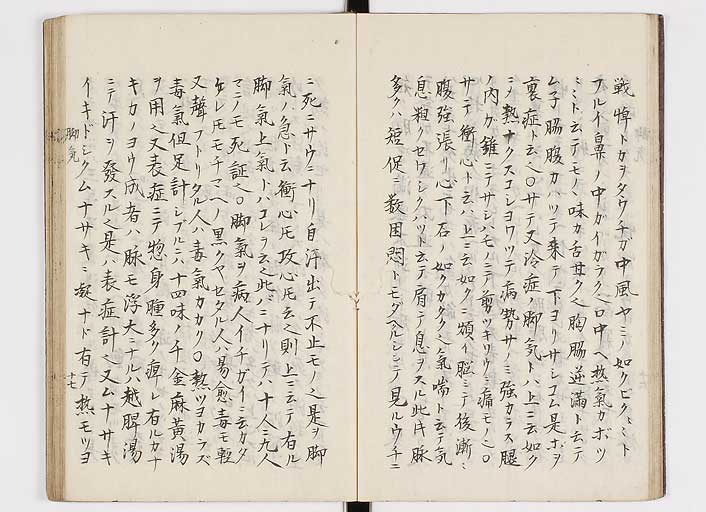 戦悼トカヲタウチガ中風ヤミノ如クビクヽミト
フルイ鼻ノ中ガイガラク口中ヘ熱氣ガボツ
ミト云テモノヽ味カ舌毋ク胸脇逆満ト云テ
ム子脇腹カハツテ来テ下ヨリサシコム是ボヲ
裏症ト云之〇サテ又冷症ノ脚氣トハ上ニ云如ク
ニノ熱ナクスコシヨウツテ病勢サノミ強カラス腿
ノ内ガ錐ニテサシハモノニテ剪ツキリウニ痛モノ之〇
サテ衝心ト云ハ上ニ云如クニ煩イ脳ミテ後漸ミ
腹強張リ心下石ノ如クカタク之氣喘ト云テ氣
息粗クセワシクハツト云テ肩テ息ヲスル此片脉
多クハ短促ニ数困悶トモダヘルシンニノ見ルウチニ
ニ死ニサウニナリ自汗出テ不止モノ之是ヲ脚
氣ノ急ト云衝心モ攻心モ云之則上ニ云テ有ル
脚氣上氣トハコレラ云之此バニナリテハ十人ニ九人
マテノモ死証之〇脚氣ヲ病人イチガイニ云カタ
ケレモモチマヘノ黒クヤセタル人ハ易愈毒モ軽
又聲フトリタル人ハ毒氣カカク〇熱ツヨカラズ
毒氣但足計シブルニハ十四味ノ千金麻黄湯
ヲ用之又表症ニテ惣身腫多ク痺レ有ルカナ
キカノヨウノ成者ハ脉モ浮大ニナルハ越脾湯
ニテ汗ヲ發スル之是ハ表症計之又ムナサキ
イキドシクムナサキニ凝ナド有テ熱モツヨ
脚氣
十七